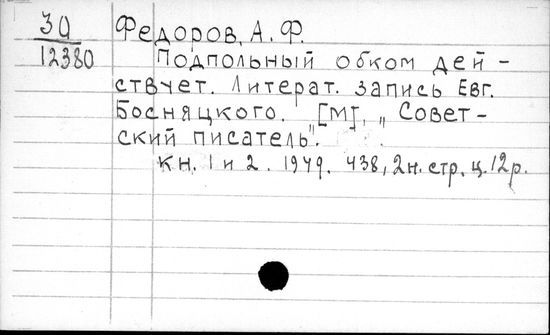 30 Федоров, А. Ф.
12380 Подпольный обком дей-
ствует. Литерат. запись Евг.
Босняцкого. [М], „Совет-
ский писатель".
кн. 1 и 2. 1949. 438, 2н. стр. ц. 12р.